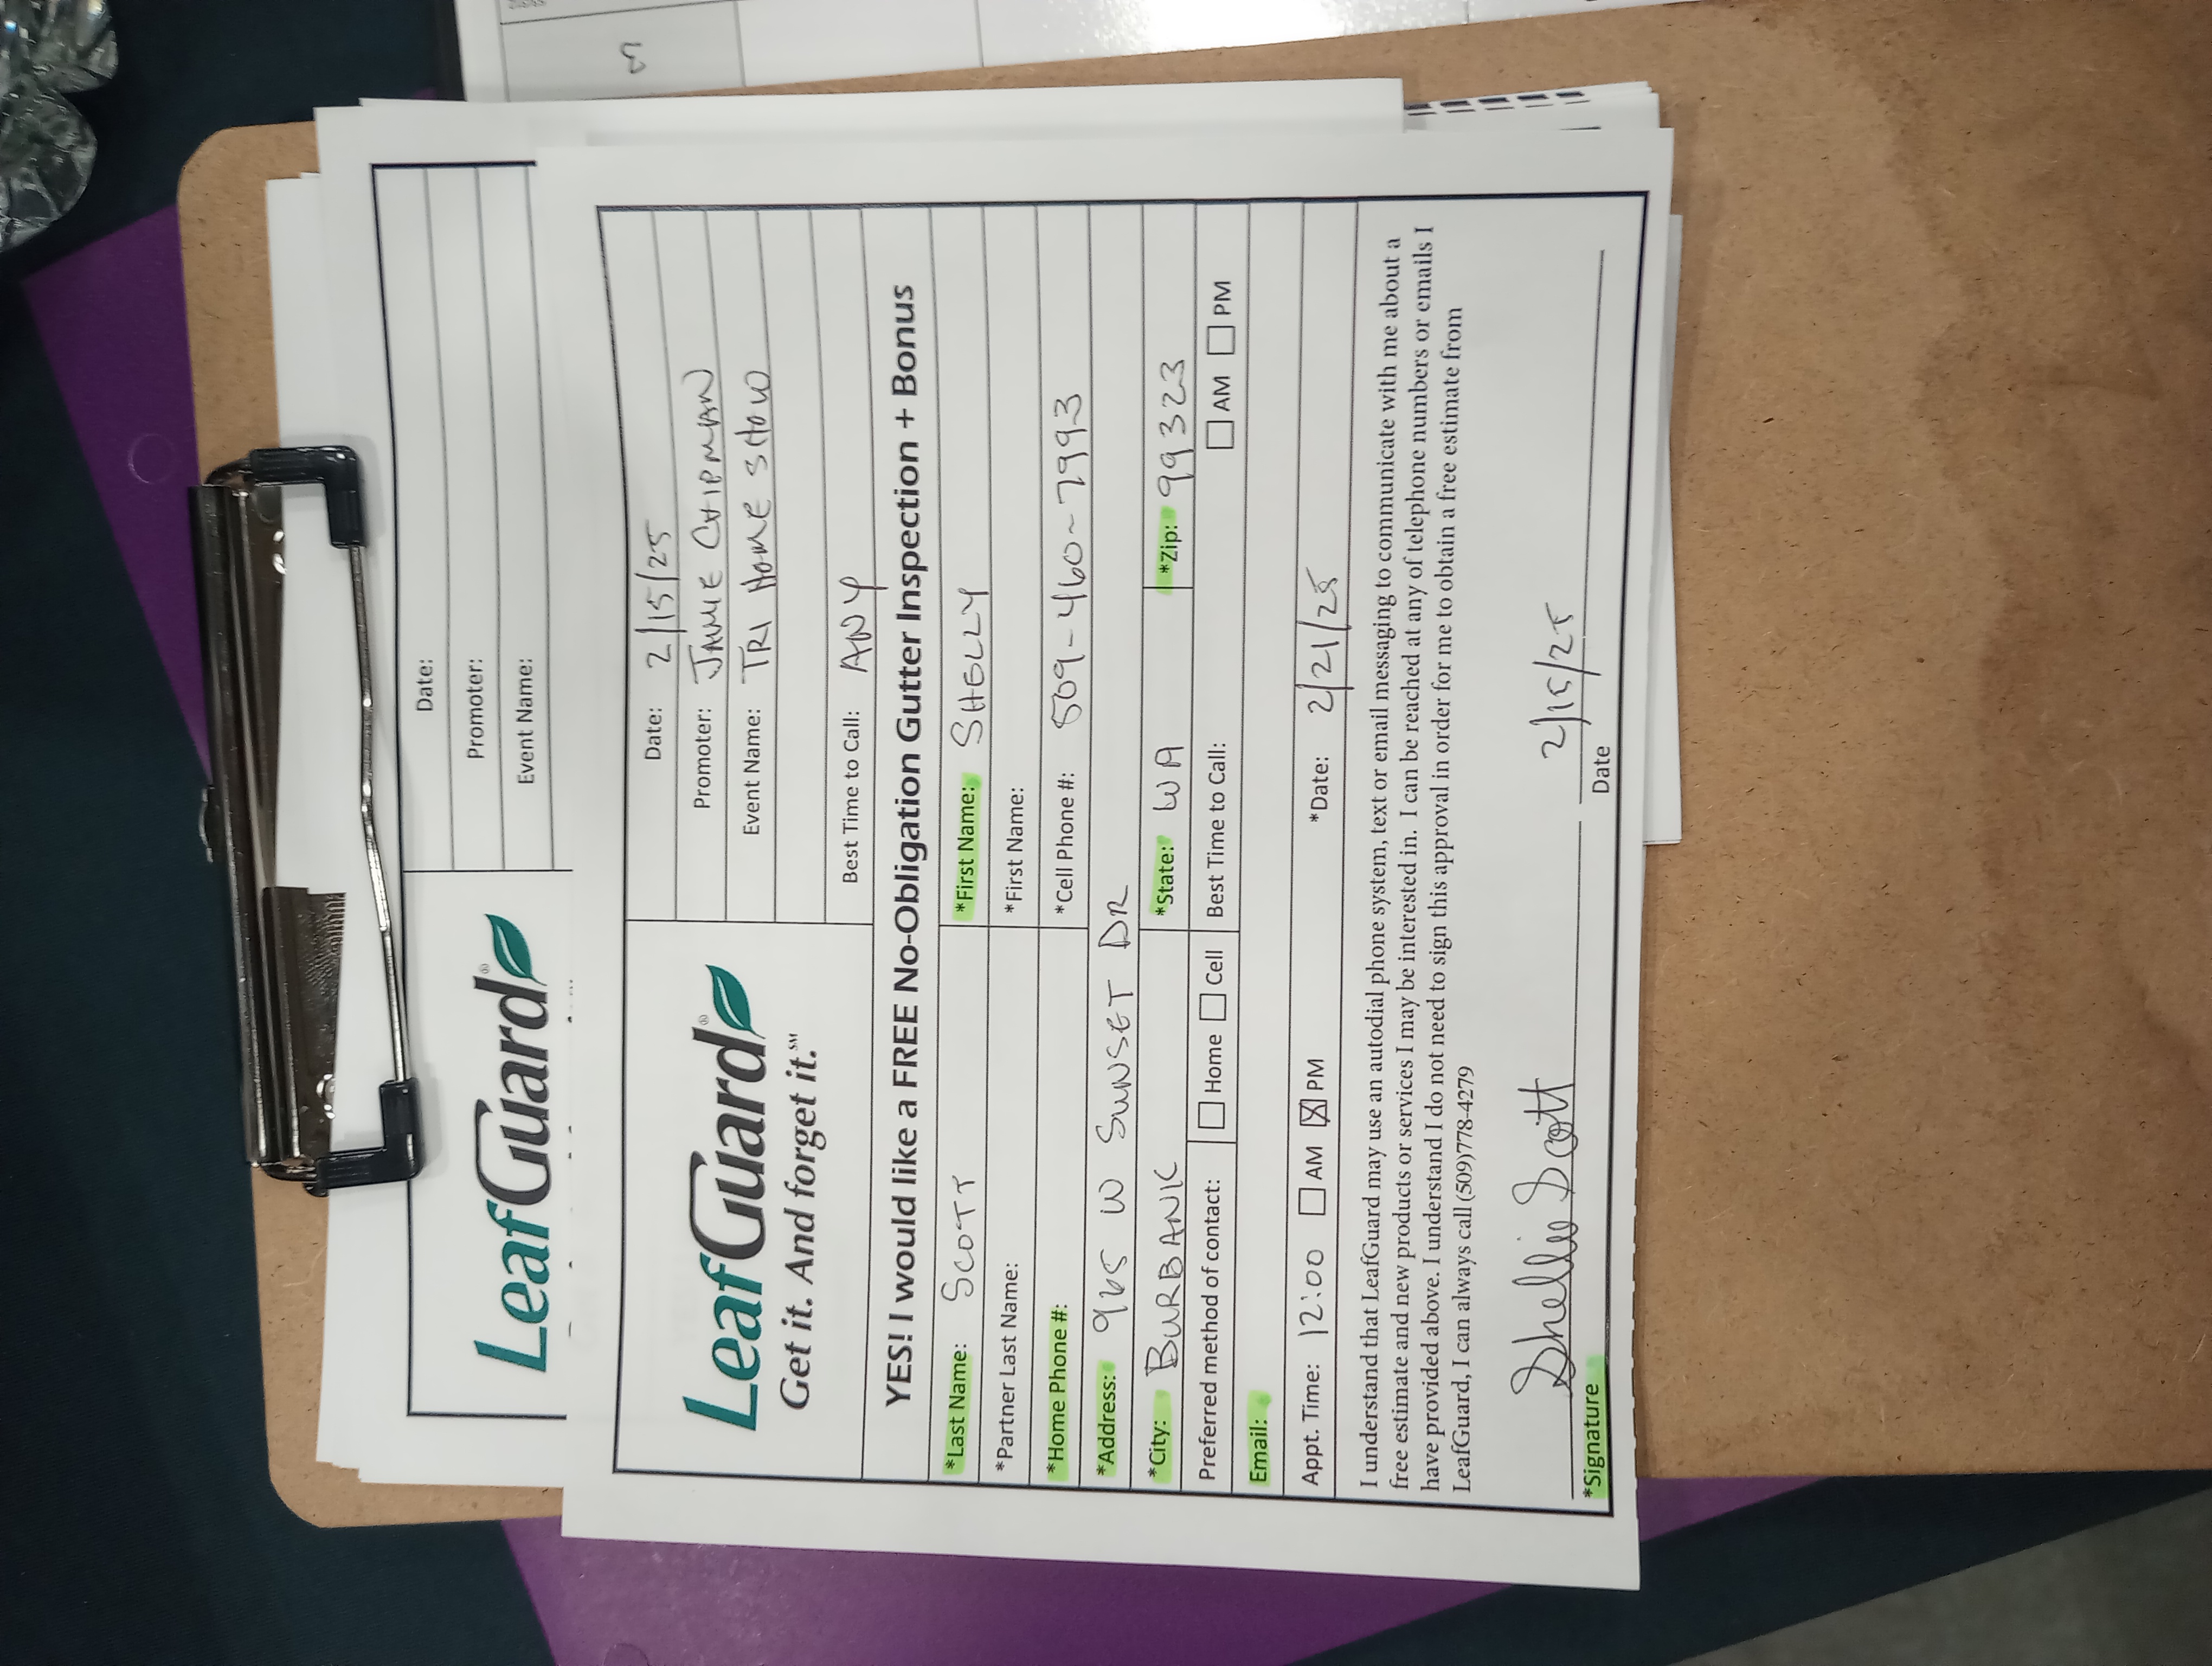 Date:
Promoter:
LeafGuard®
Event Name:
LeafGuard®
Get it. And forget it.℠
Date: 2/15/25
Promoter: JAMIE CHIPMAN
Event Name: TRI HOME SHOW
Best Time to Call: ANY
YES! I would like a FREE No-Obligation Gutter Inspection + Bonus
*Last Name: SCOTT *First Name: SHELLY
*Partner Last Name: *First Name:
*Home Phone #: *Cell Phone #: 509-460-7993
*Address: 965 W SUNSET DR
*City: BURBANK *State: WA *Zip: 99323
Preferred method of contact: Home Cell Best Time to Call: AM PM
Email:
Appt. Time: 12:00 AM PM *Date: 2/21/25
I understand that LeafGuard may use an autodial phone system, text or email messaging to communicate with me about a
free estimate and new products or services I may be interested in. I can be reached at any of telephone numbers or emails I
have provided above. I understand I do not need to sign this approval in order for me to obtain a free estimate from
LeafGuard, I can always call (509)778-4279
Shellie Scott 2/15/25
*Signature Date
3